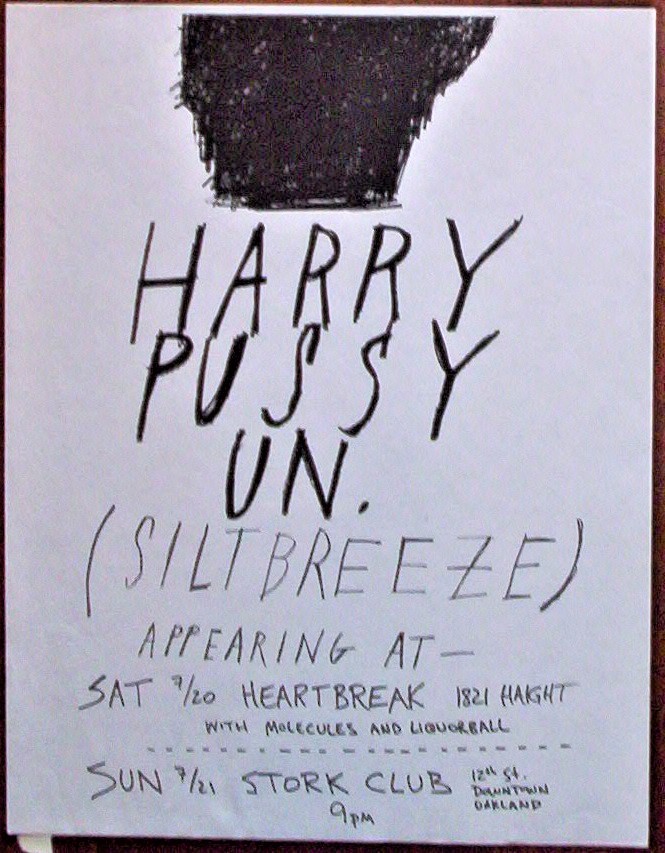 HARRY
PUSSY
UN.
(SILTBREEZE)
APPEARING AT —
SAT 7/20 HEARTBREAK 1821 HAIGHT
WITH MOLECULES AND LIQUORBALL
SUN 7/21 STORK CLUB 12th St. DOWNTOWN OAKLAND
9PM